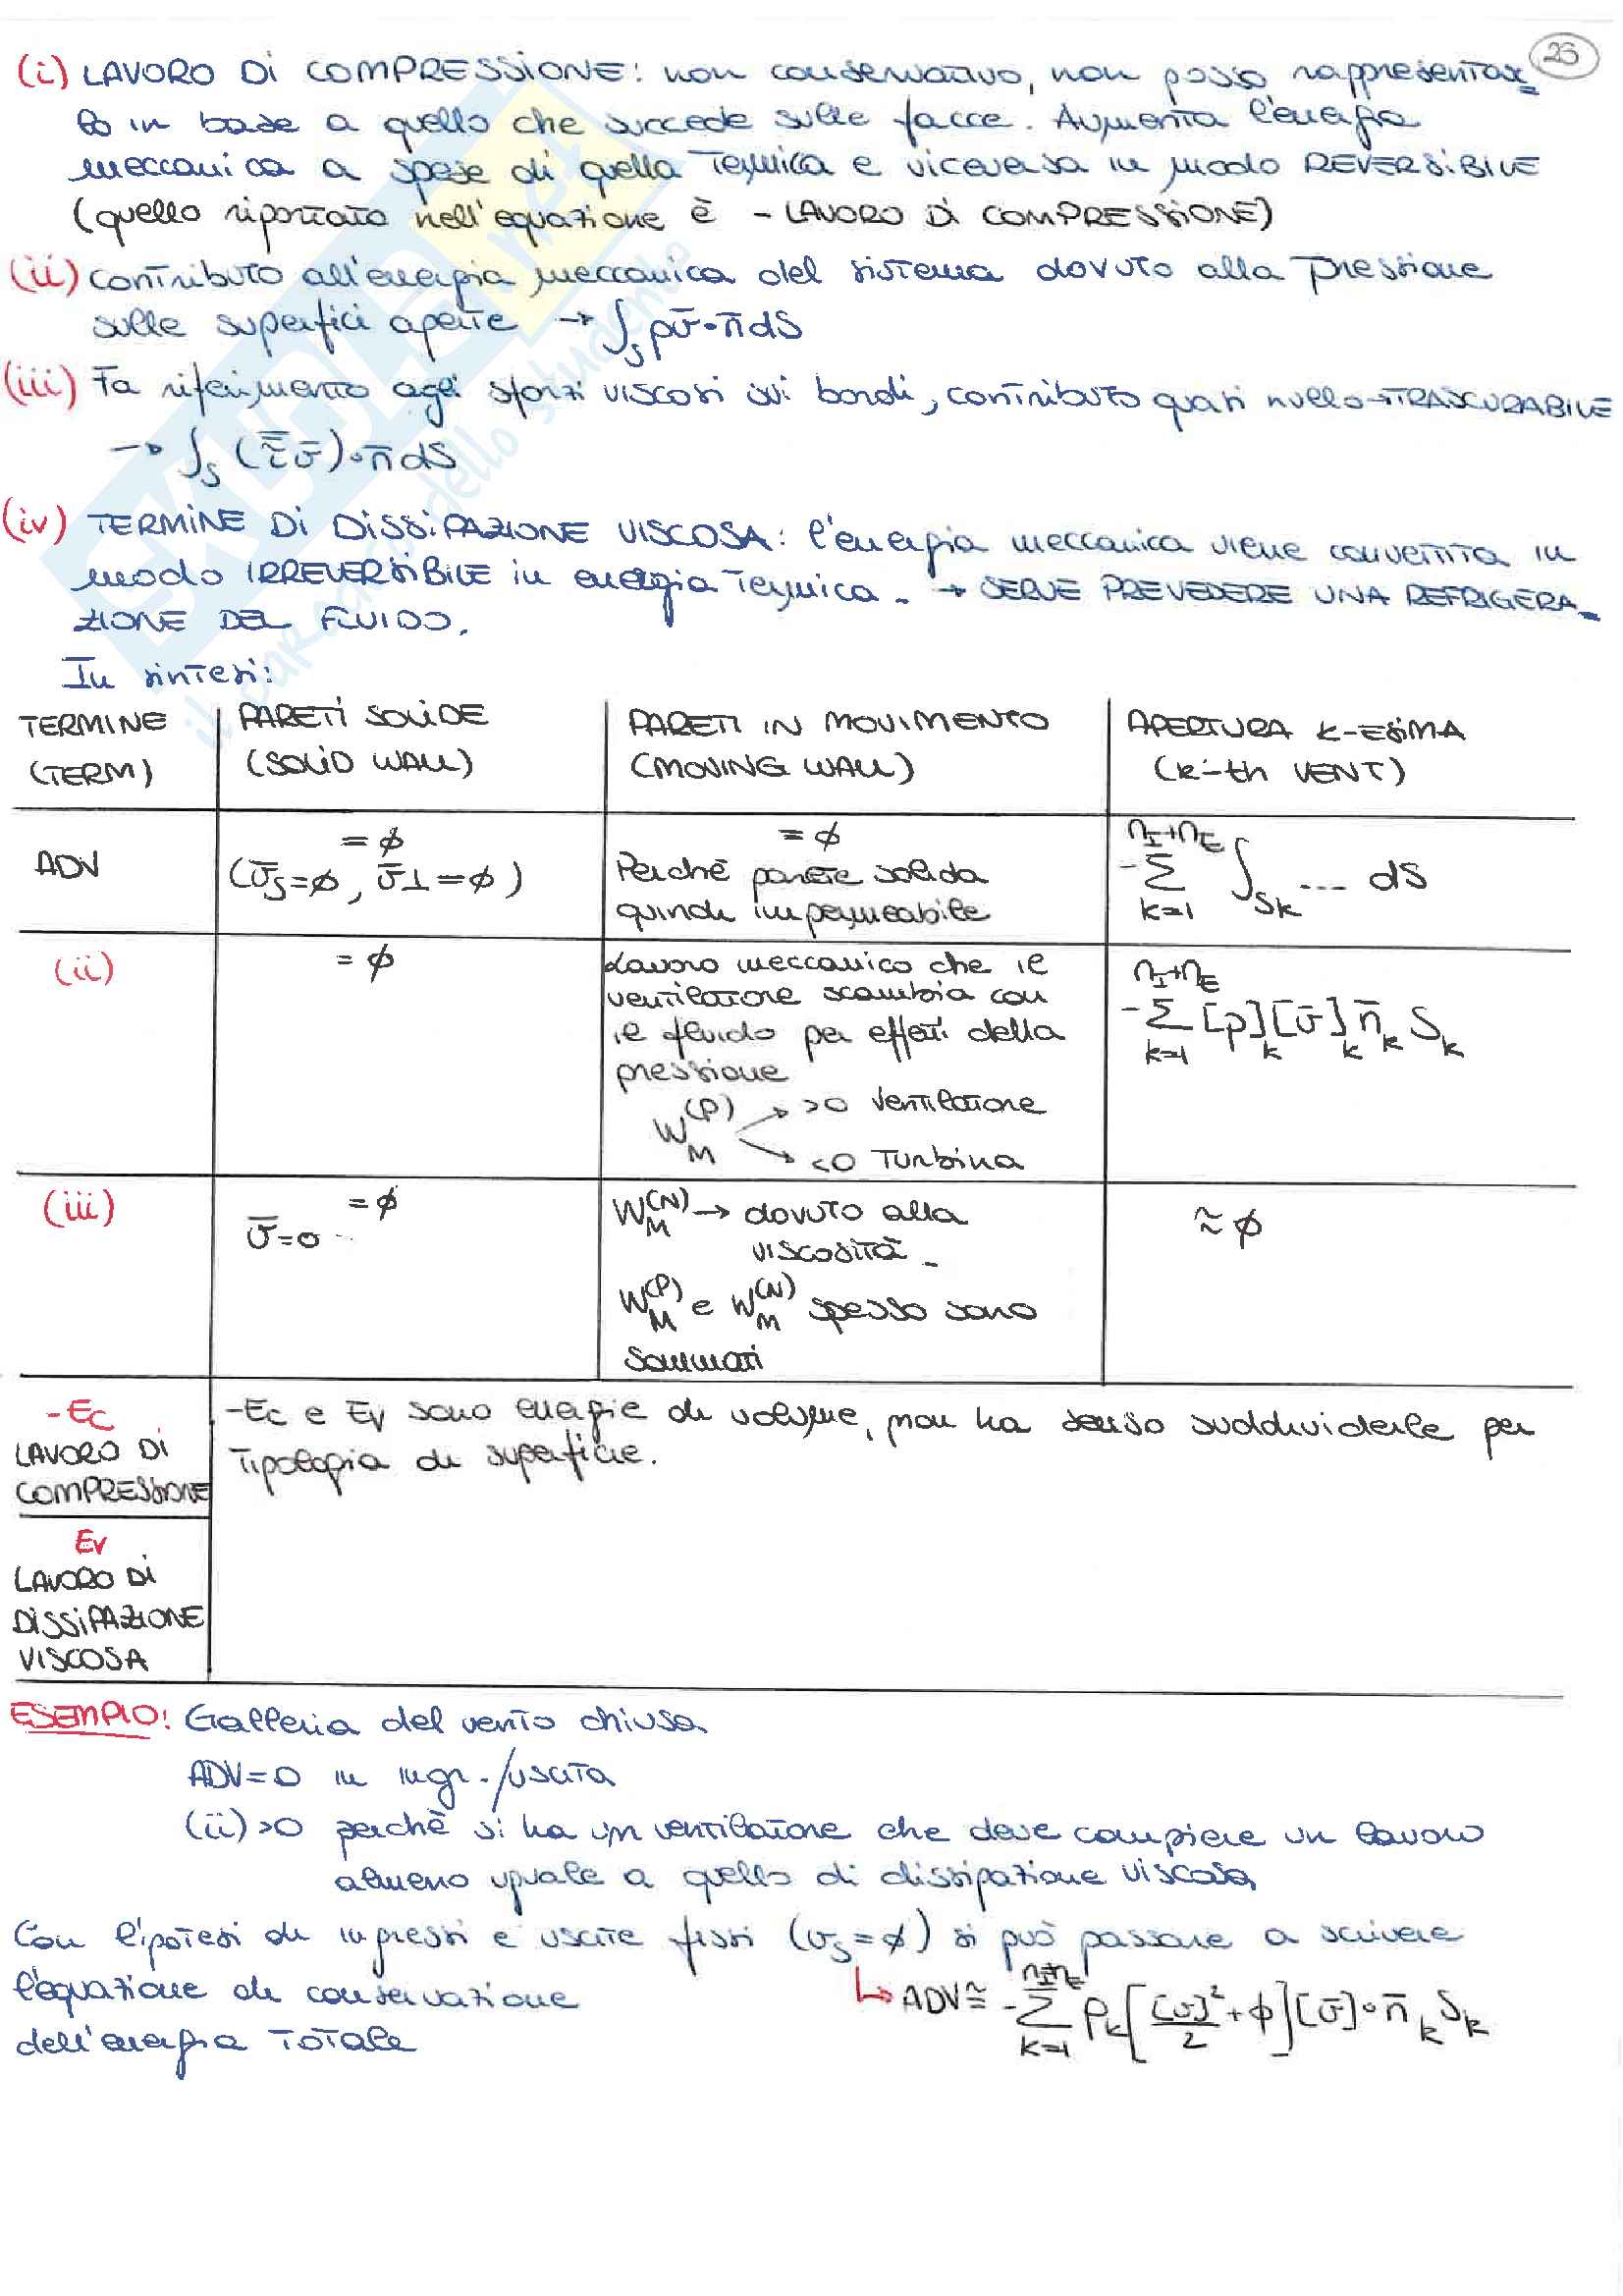 25
(i) LAVORO DI COMPRESSIONE: non conservativo, non posso rappresentar=
lo in base a quello che succede sulle facce. Aumenta l'energia
meccanica a spese di quella termica e viceversa in modo REVERSIBILE
(quello riportato nell'equazione è - LAVORO DI COMPRESSIONE)
(ii) contributo all'energia meccanica del sistema dovuto alla pressione
sulle superfici aperte → ∫_S p v̄·n̄ dS
(iii) Fa riferimento agli sforzi viscosi sui bordi, contributo quasi nullo → TRASCURABILE
→ ∫_S (τ̿ v̄)·n̄ dS
(iv) TERMINE DI DISSIPAZIONE VISCOSA: l'energia meccanica viene convertita in
modo IRREVERSIBILE in energia termica. → SERVE PREVEDERE UNA REFRIGERA-
ZIONE DEL FLUIDO.
In sintesi:
TERMINE (TERM) | PARETI SOLIDE (SOLID WALL) | PARETI IN MOVIMENTO (MOVING WALL) | APERTURA K-ESIMA (k-th VENT)
ADV | =ϕ (v̄_S=ϕ, v̄⊥=ϕ) | =ϕ Perchè parete solida quindi impermeabile | -Σ_{k=1}^{n_I+n_E} ∫_{S_k} ... dS
(ii) | =ϕ | Lavoro meccanico che il ventilatore scambia con il fluido per effetti della pressione W_M^(P) → >0 ventilatore → <0 Turbina | -Σ_{k=1}^{n_I+n_E} [p]_k [v̄]_k n̄_k S_k
(iii) | v̄=0 =ϕ | W_M^(N) → dovuto alla viscosità. W_M^(P) e W_M^(N) spesso sono sommati | ≈ϕ
-Ec LAVORO DI COMPRESSIONE | -Ec e Ev sono energie di volume, non ha senso suddividerle per tipologia di superficie.
Ev LAVORO DI DISSIPAZIONE VISCOSA
ESEMPIO: Galleria del vento chiusa
ADV=0 in ingr./uscita
(ii)>0 perchè si ha un ventilatore che deve compiere un lavoro
almeno uguale a quello di dissipazione viscosa
Con l'ipotesi di ingressi e uscite fissi (v_S=ϕ) si può passare a scrivere
l'equazione di conservazione
dell'energia TOTALE
↳ ADV ≅ -Σ_{k=1}^{n_I+n_E} ρ_k [[v]²/2 + ϕ][v̄]·n̄_k S_k
il paradiso dello studente